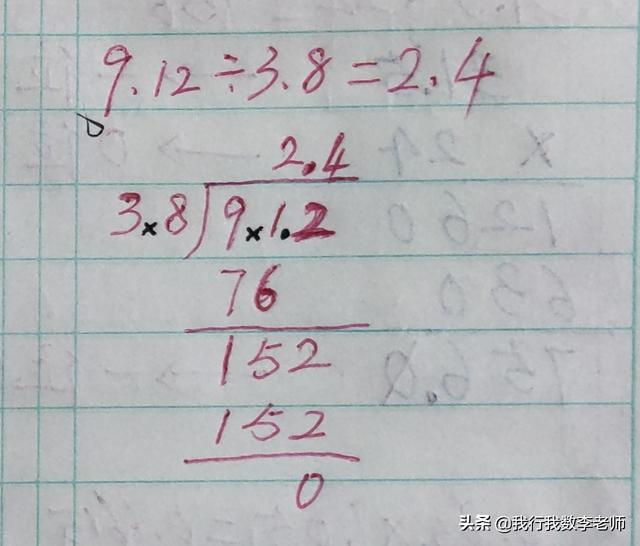 9.12÷3.8=2.4
2.4
3.8)9.1.2
76
152
152
0
头条 @我行我数李老师